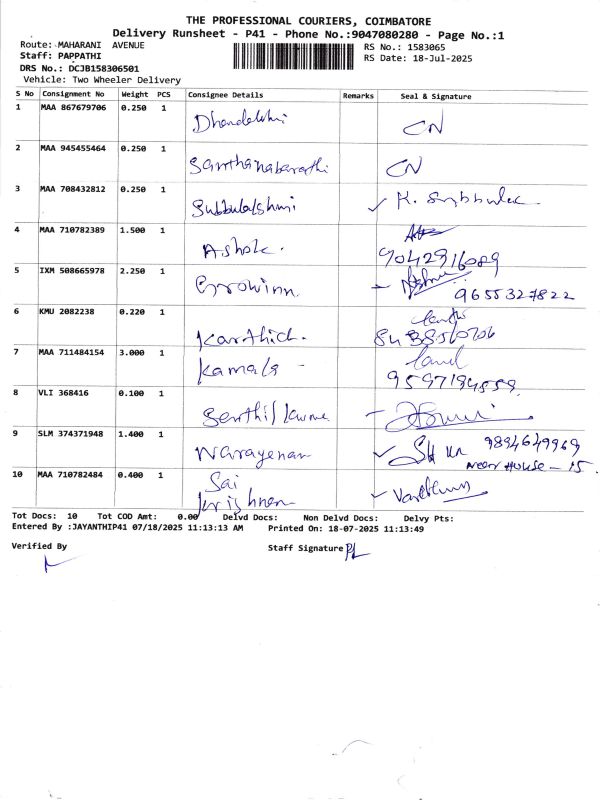 THE PROFESSIONAL COURIERS, COIMBATORE
Delivery Runsheet - P41 - Phone No.:9047080280 - Page No.:1
Route: MAHARANI AVENUE
RS No.: 1583065
Staff: PAPPATHI
RS Date: 18-Jul-2025
DRS No.: DCJB158306501
Vehicle: Two Wheeler Delivery
S No Consignment No Weight PCS Consignee Details Remarks Seal & Signature
1 MAA 867679706 0.250 1 CN
2 MAA 945455464 0.250 1 CN
3 MAA 708432812 0.250 1 Subbulakshmi K.
4 MAA 710782389 1.500 1 Ashok. 9042916089
5 IXM 508665978 2.250 1 9655327822
6 KMU 2082238 0.220 1 Karthick.
7 MAA 711484154 3.000 1 Kamala
8 VLI 368416 0.100 1
9 SLM 374371948 1.400 1 Narayenan 9894649969
Near House - 15
10 MAA 710782484 0.400 1 Sai
Krishnan
Tot Docs: 10 Tot COD Amt: 0.00 Delvd Docs: Non Delvd Docs: Delvy Pts:
Entered By :JAYANTHIP41 07/18/2025 11:13:13 AM Printed On: 18-07-2025 11:13:49
Verified By Staff Signature